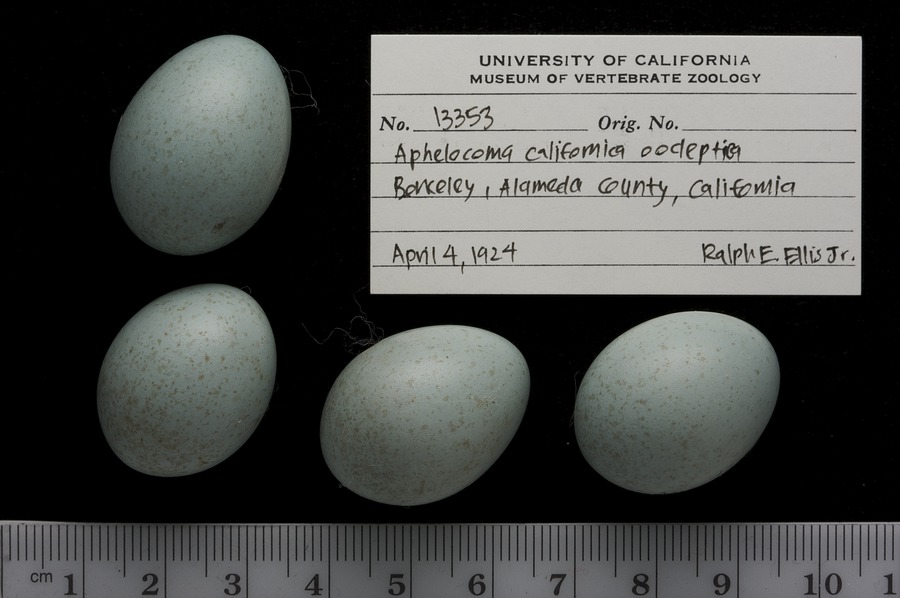 UNIVERSITY OF CALIFORNIA
MUSEUM OF VERTEBRATE ZOOLOGY
No. 13353 Orig. No.
Aphelocoma california oocleptica
Berkeley, Alameda County, California
April 4, 1924 Ralph E. Ellis Jr.
cm 1 2 3 4 5 6 7 8 9 10 1